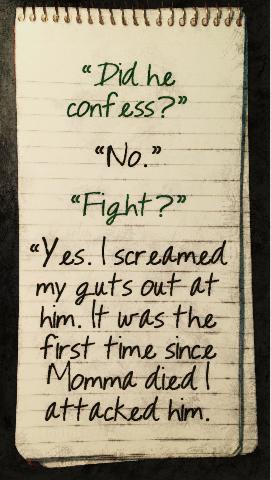 “Did he
confess?”
“No.”
“Fight?”
“Yes. I screamed
my guts out at
him. It was the
first time since
Momma died I
attacked him.